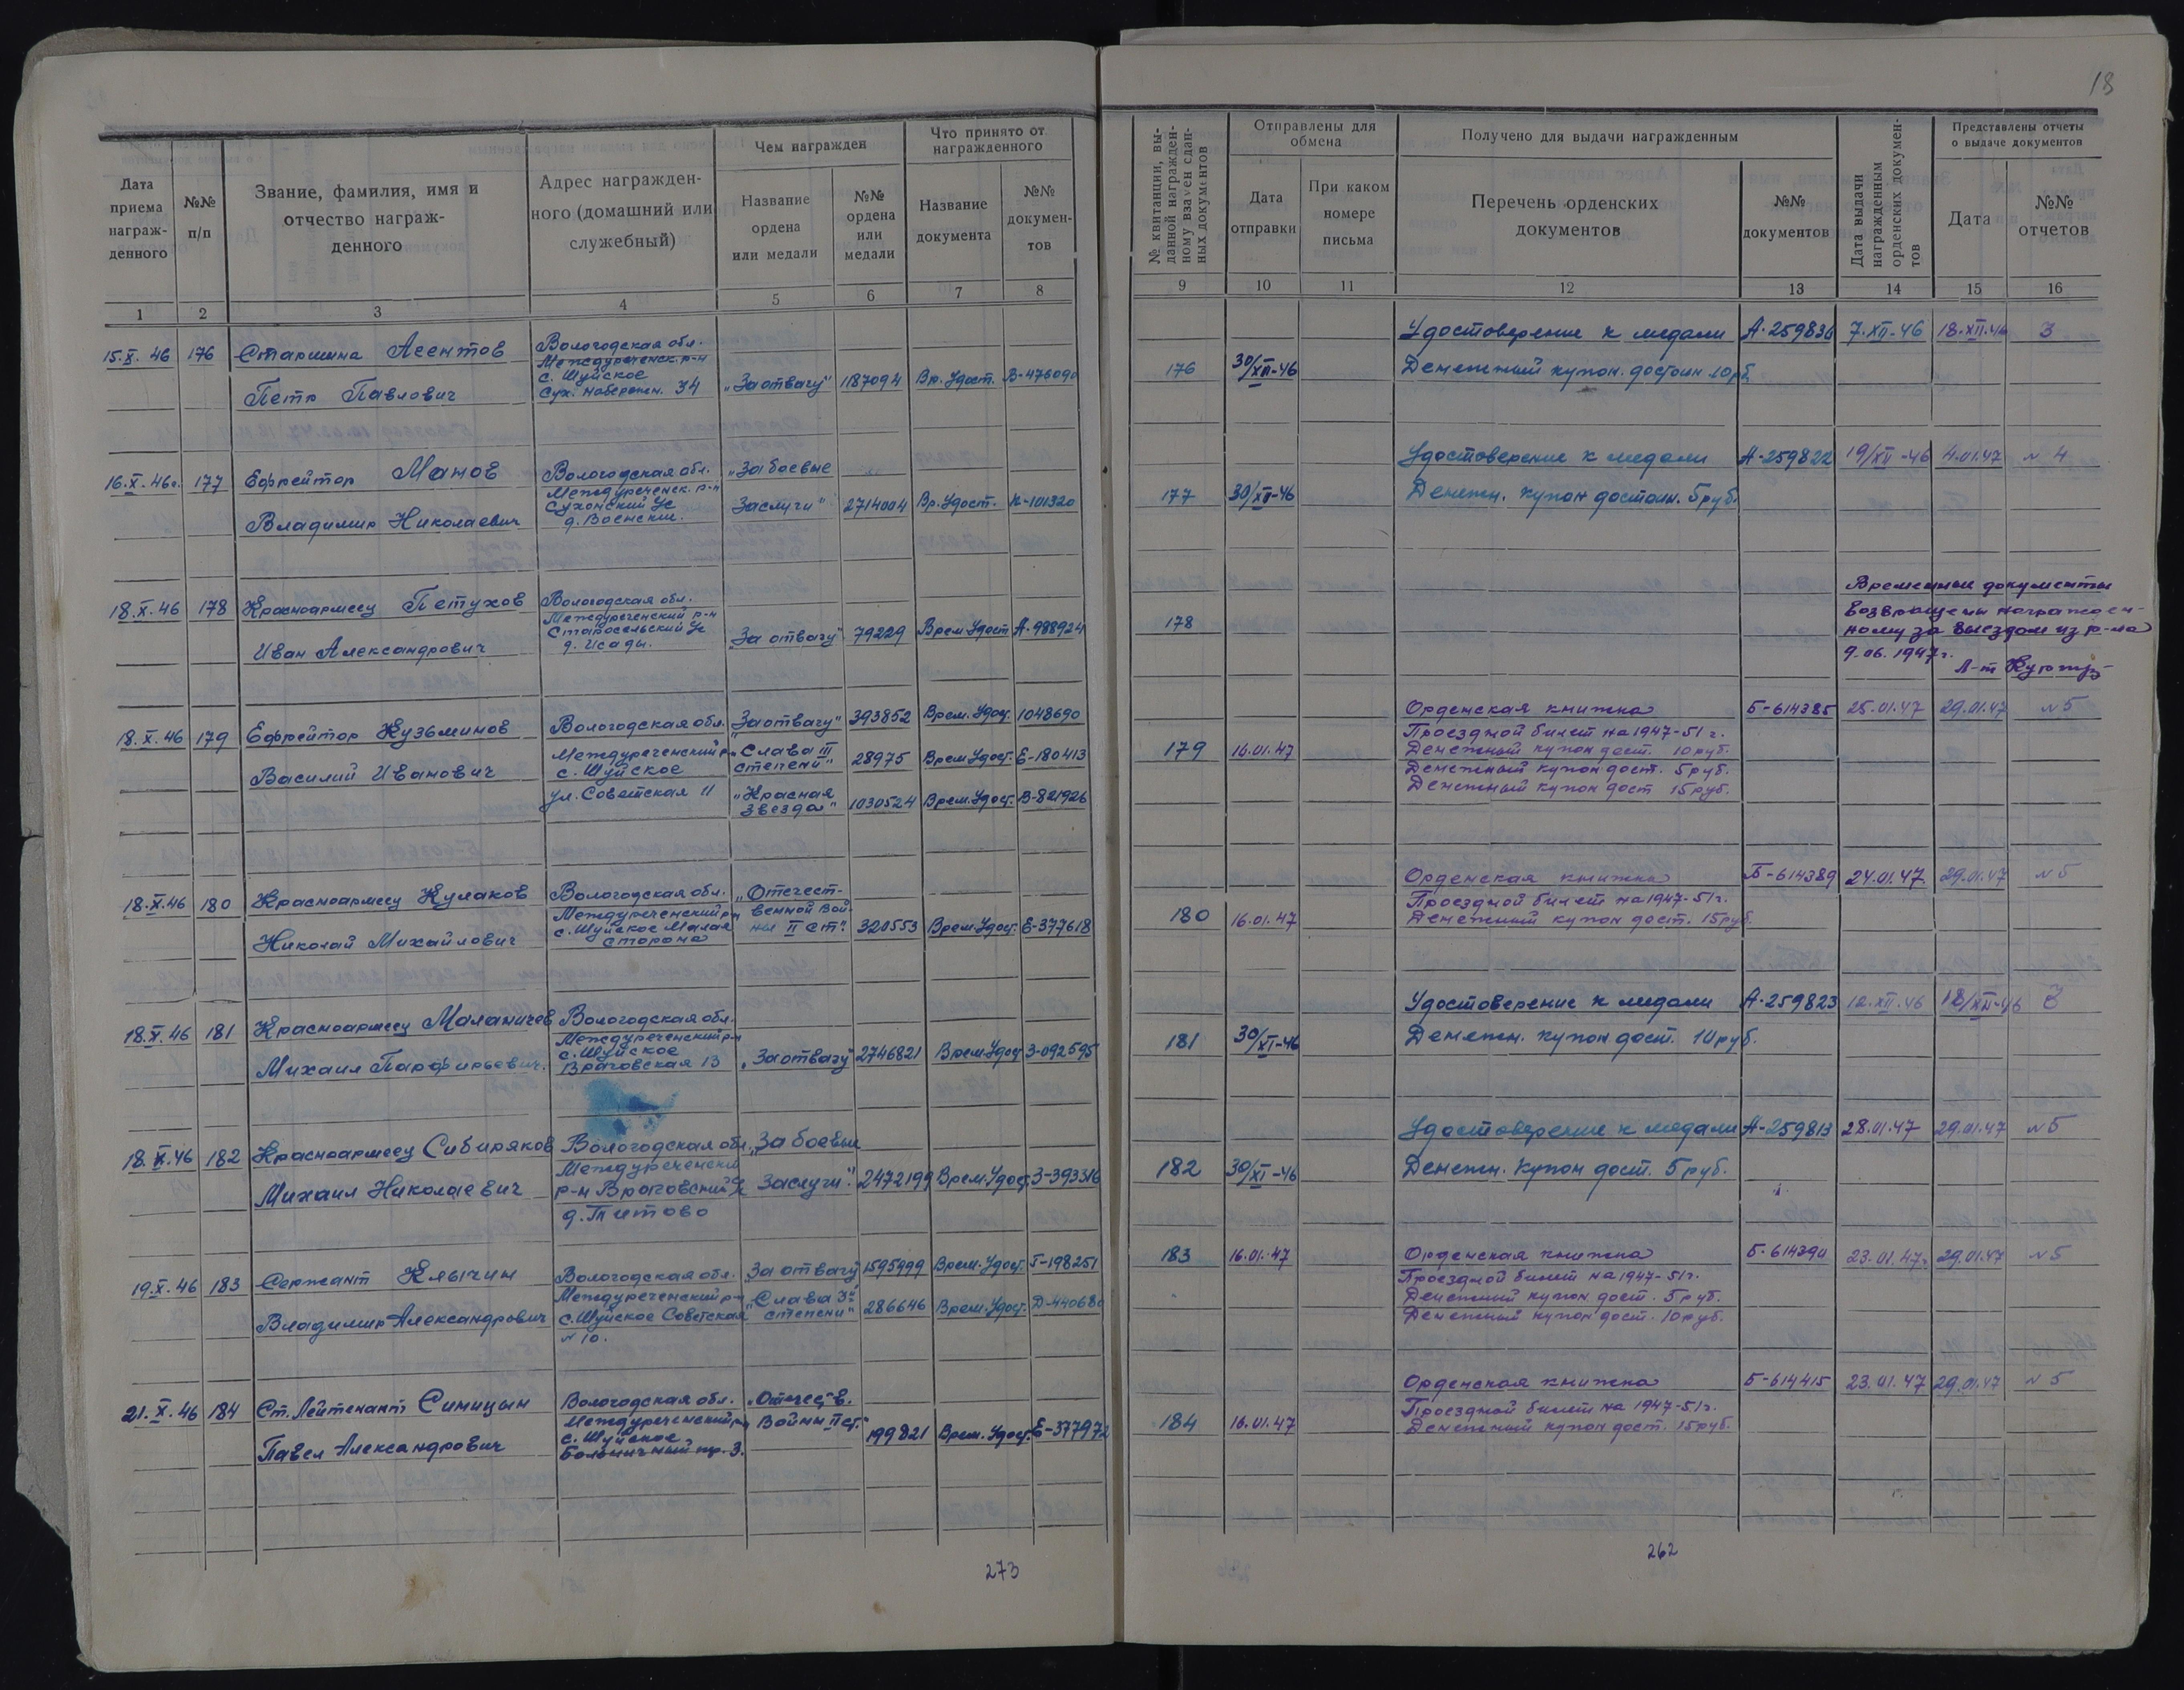 18
Дата приема награж-денного
№№ п/п
Звание, фамилия, имя и отчество награж-денного
Адрес награжден-ного (домашний или служебный)
Чем награжден
Название ордена или медали
№№ ордена или медали
Что принято от награжденного
Название документа
№№ докумен-тов
1 2 3 4 5 6 7 8
15.X.46 176 Старшина Асентов Вологодская обл.
Междуреченск. р-н
с. Шуйское
Петр Павлович Сух. набережн. 34 „За отвагу" 1187094 Вр. Удост. В-476090
16.X.46г. 177 Ефрейтор Манов Вологодская обл. „За боевые
Междуреченск. р-н
Владимир Николаевич Сухонский Ус Заслуги" 2714004 Вр. Удост. К-101320
18.X.46 178 Красноармеец Петухов Вологодская обл.
Междуреченский р-н
Старосельский Ус
Иван Александрович д. Исады. „За отвагу" 79229 Врем Удост А-988924
18.X.46 179 Ефрейтор Кузьминов Вологодская обл. „За отвагу" 393852 Врем. Удос. 1048690
Василий Иванович Междуреченский р-н „Слава III
с. Шуйское степени" 28975 Врем Удос. Е-180413
ул. Советская 11 „Красная
Звезда" 1030524 Врем. Удос. В-821926
18.X.46 180 Красноармеец Кулаков Вологодская обл. „Отечест-
Междуреченский р-н венной Вой-
Николай Михайлович с. Шуйское Малая ны II ст". 320553 Врем. Удос. Е-377618
сторона
18.X.46 181 Красноармеец Маланичев Вологодская обл.
Междуреченский р-н
с. Шуйское
Михаил Парфирьевич. Враговская 13 „За отвагу" 2746821 Врем. Удос З-092595
18.X.46 182 Красноармеец Сибиряков Вологодская обл. „За боевые
Междуреченский
Михаил Николаевич р-н Враговский Ус Заслуги". 2472199 Врем. Удос. З-393316
д. Титово
19.X.46 183 Сержант Клычин Вологодская обл. „За отвагу" 1595999 Врем. Удос. Г-198251
Междуреченский р-н „Слава 3й
Владимир Александрович с. Шуйское Советская степени" 286646 Врем. Удост. Д-440680
№ 10.
21.X.46 184 Ст. Лейтенант Синицын Вологодская обл. „Отечеств.
Междуреченский р-н Войны II ст."
Павел Александрович с. Шуйское 199821 Врем. Удос. Е-377972
Больничный пр. 3.
273
№ квитанции, вы-данной награжден-ному взамен сдан-ных документов
Отправлены для обмена
Дата отправки
При каком номере письма
Получено для выдачи награжденным
Перечень орденских документов
№№ документов
Дата выдачи награжденным орденских докумен-тов
Представлены отчеты о выдаче документов
Дата
№№ отчетов
9 10 11 12 13 14 15 16
Удостоверение к медали А-259836 7.XII-46 18.XII.46 3
176 30/XII-46 Денежный купон. достоин. 10 рб
Удостоверение к медали А-259822 19/XII-46 4.01.47 № 4
177 30/XII-46 Денежн. купон достоин. 5 руб.
178
Временные документы
возвращены награжден-
ному за выездом из р-на
9.06.1947г.
Л-т
Орденская книжка Б-614385 25.01.47 29.01.47 № 5
Проездной билет на 1947-51 г.
179 16.01.47 Денежный купон дост. 10 руб.
Денежный купон дост. 5 руб.
Денежный купон дост 15 руб.
Орденская книжка Б-614389 24.01.47. 29.01.47 № 5
Проездной билет на 1947-51г.
180 16.01.47 Денежный купон дост. 15 руб.
Удостоверение к медали А-259823 12.XII.46 18/XII-46 3
181 30/XI-46 Денежн. купон дост. 10 руб.
Удостоверение к медали А-259813 28.01.47 29.01.47 № 5
182 30/XI-46 Денежн. Купон дост. 5 руб.
183 16.01.47 Орденская книжка Б-614390 23.01.47г. 29.01.47 № 5
Проездной билет на 1947-51г.
Денежный купон дост. 5 руб.
Денежный купон дост. 10 руб.
Орденская книжка Б-614415 23.01.47 29.01.47 № 5
Проездной билет на 1947-51г.
184 16.01.47 Денежный купон дост. 15 руб.
262